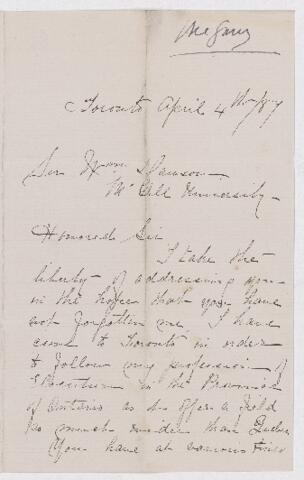 McGarry
Toronto April 4th /87
Sir Wm Dawson
McGill University
Honored Sir
I take the
liberty of addressing you
in the hopes that you have
not forgotten me, I have
come to Toronto in order
to follow my profession of
Elocution in the Province
of Ontario as it offers a field
so much wider than Quebec
You have at various times